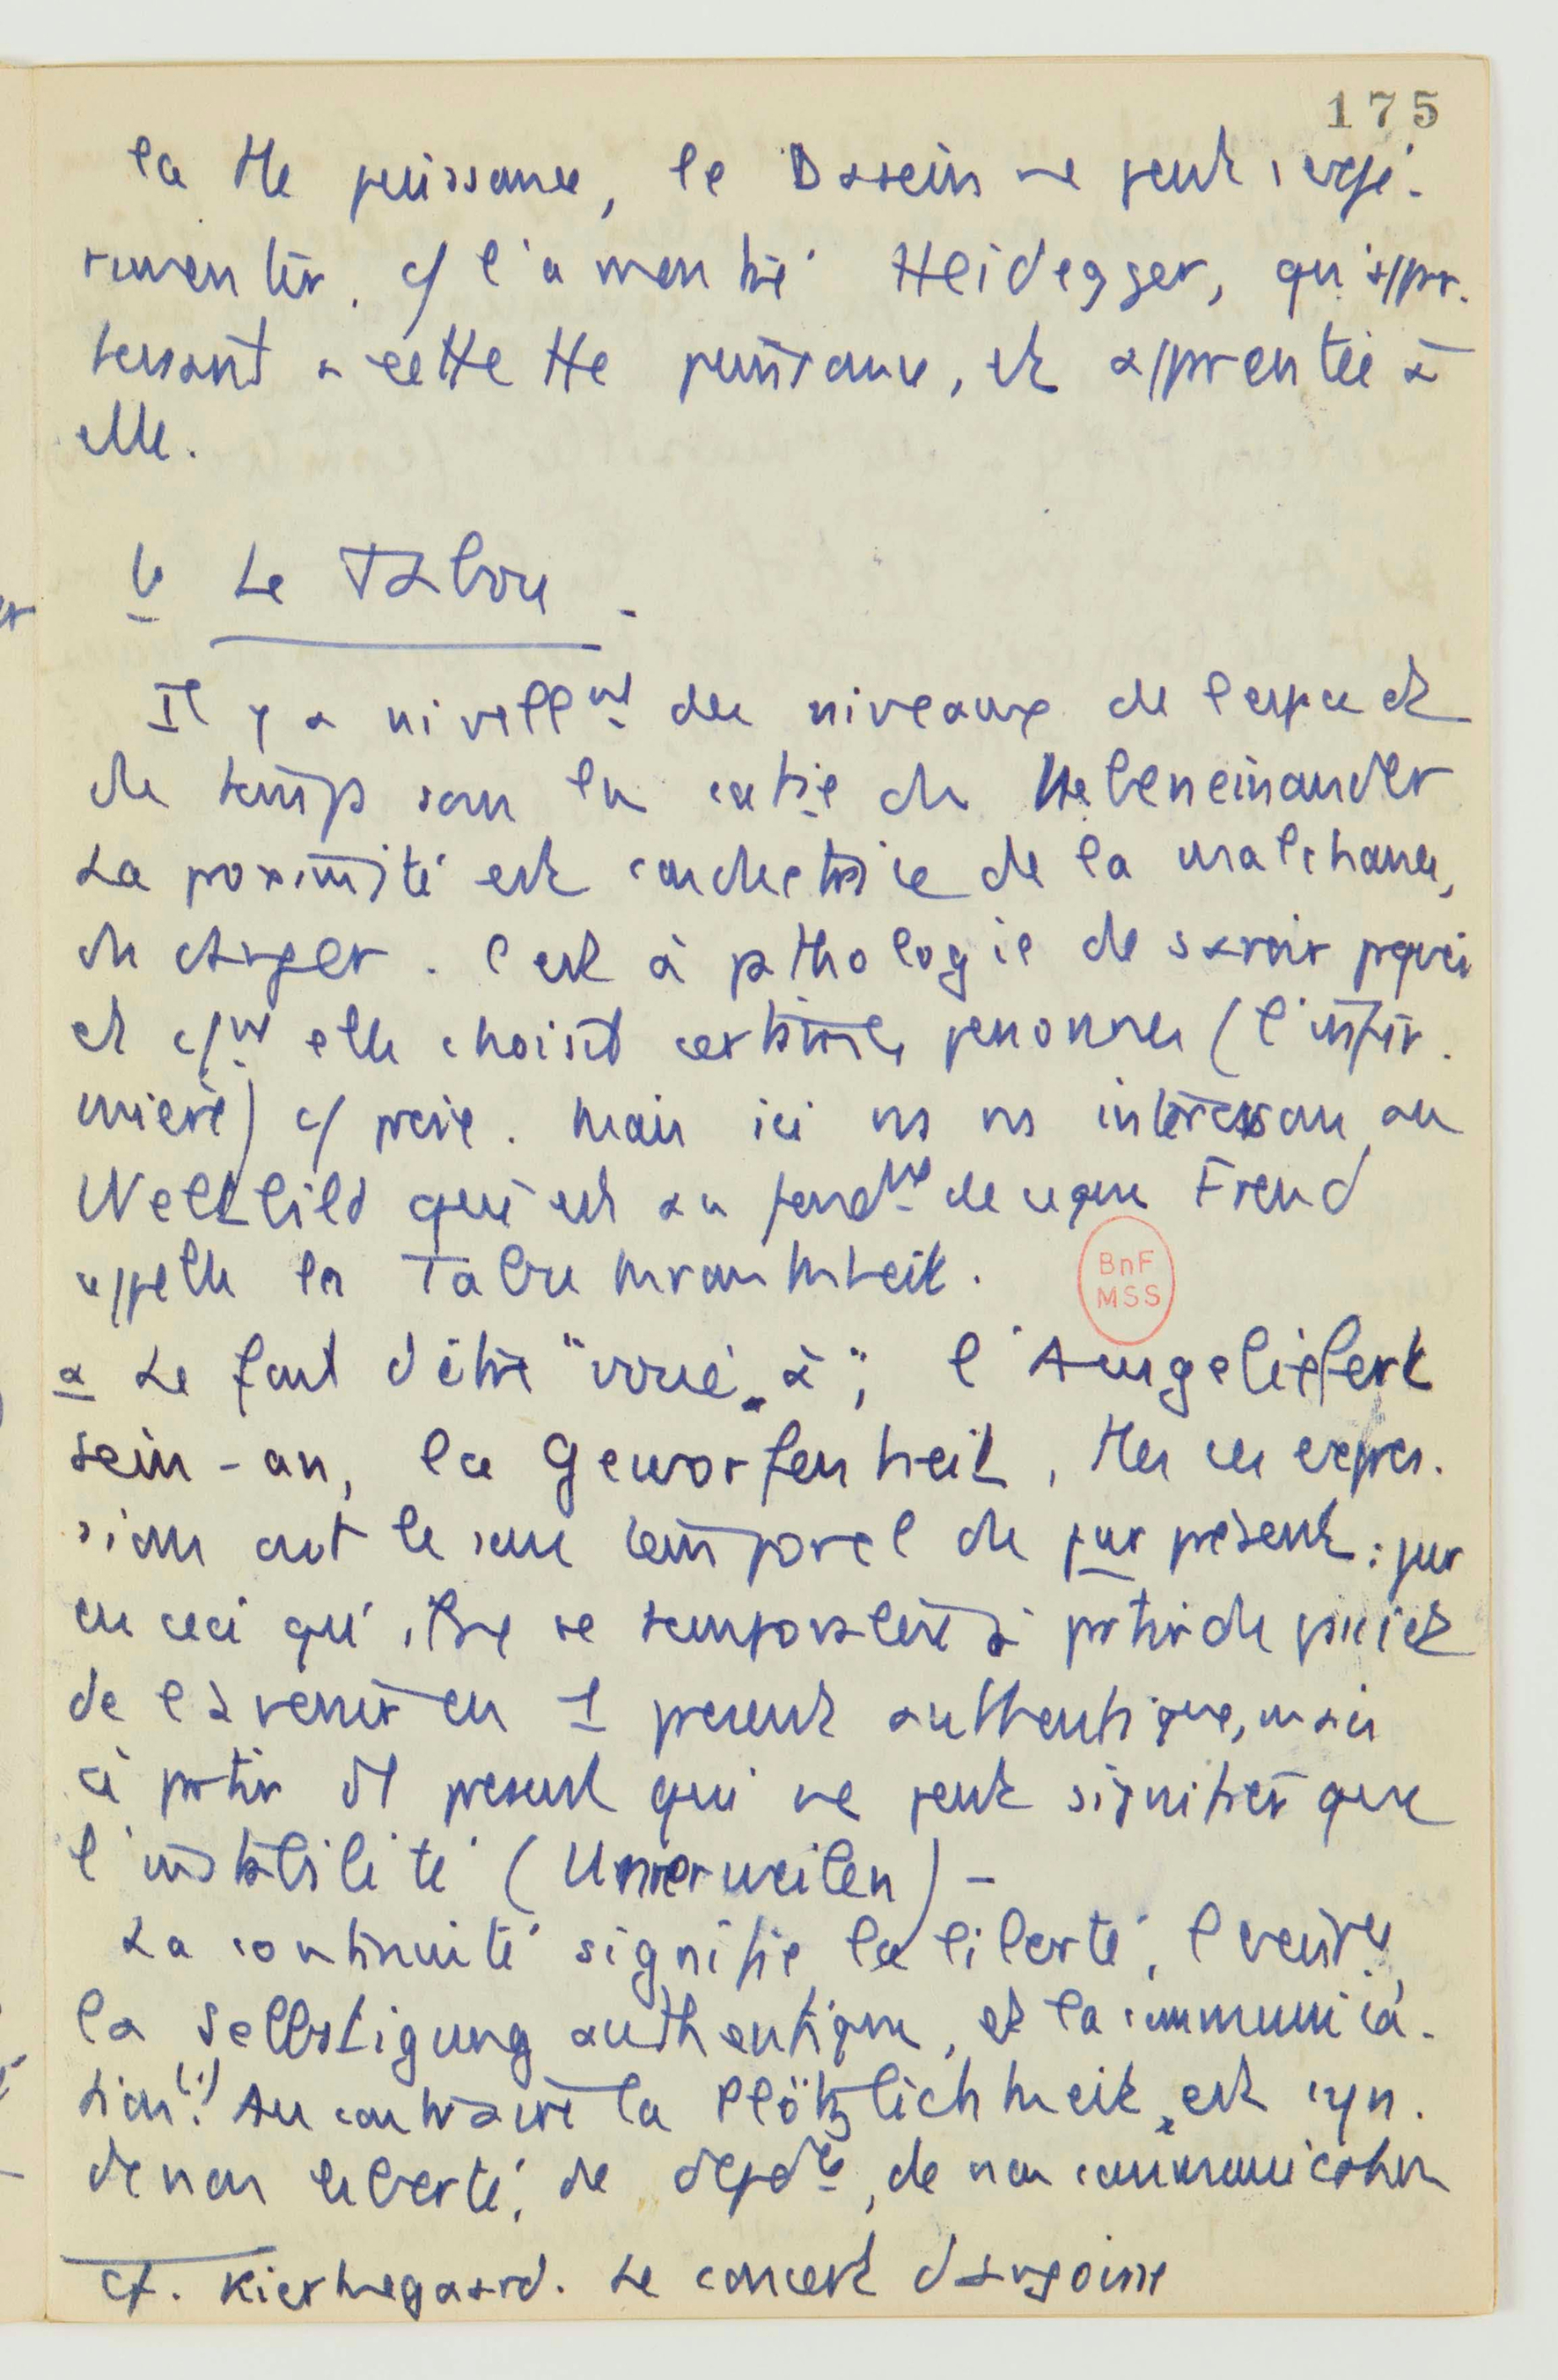 175
la tte puissance, le Dasein ne peut s'expé-
rimenter. c/ l'a montré Heidegger, qu'appar-
tenant à cette tte puissance, et apprentée à
elle.
b Le Tabou.
Il y a nivellnt des niveaux de l'espace et
du temps sous la catie du Nebeneinander
La proximité est conductrice de la malchance,
du danger. C'est à pathologie de savoir pquoi
et c/nt elle choisit certaines personnes (l'infir-
mière) c/ proie. Mais ici ns ns intéressons au
Weltbild qui est au fondnt de ce que Freud
appelle la Tabu Krankheit.
a Le fait d'être "voué à", l'Ausgeliefert
sein-an, la Geworfenheit, ttes ces expres-
sions ont le sens temporel du pur présent : pur
en ceci qu' se temporalise à partir du passé et
de l'avenir en 1 présent authentique, mais
à partir d'1 présent qui ne peut signifier que
l'instabilité (Unverweilen) -
La continuité signifie la liberté, 
la Selbstigung authentique, et la communica-
tion(.) Au contraire la Plötzlichkeit est syn.
de non liberté, de dépdce, de non communication
cf. Kierkegaard. Le concept d'angoisse
BnF
MSS